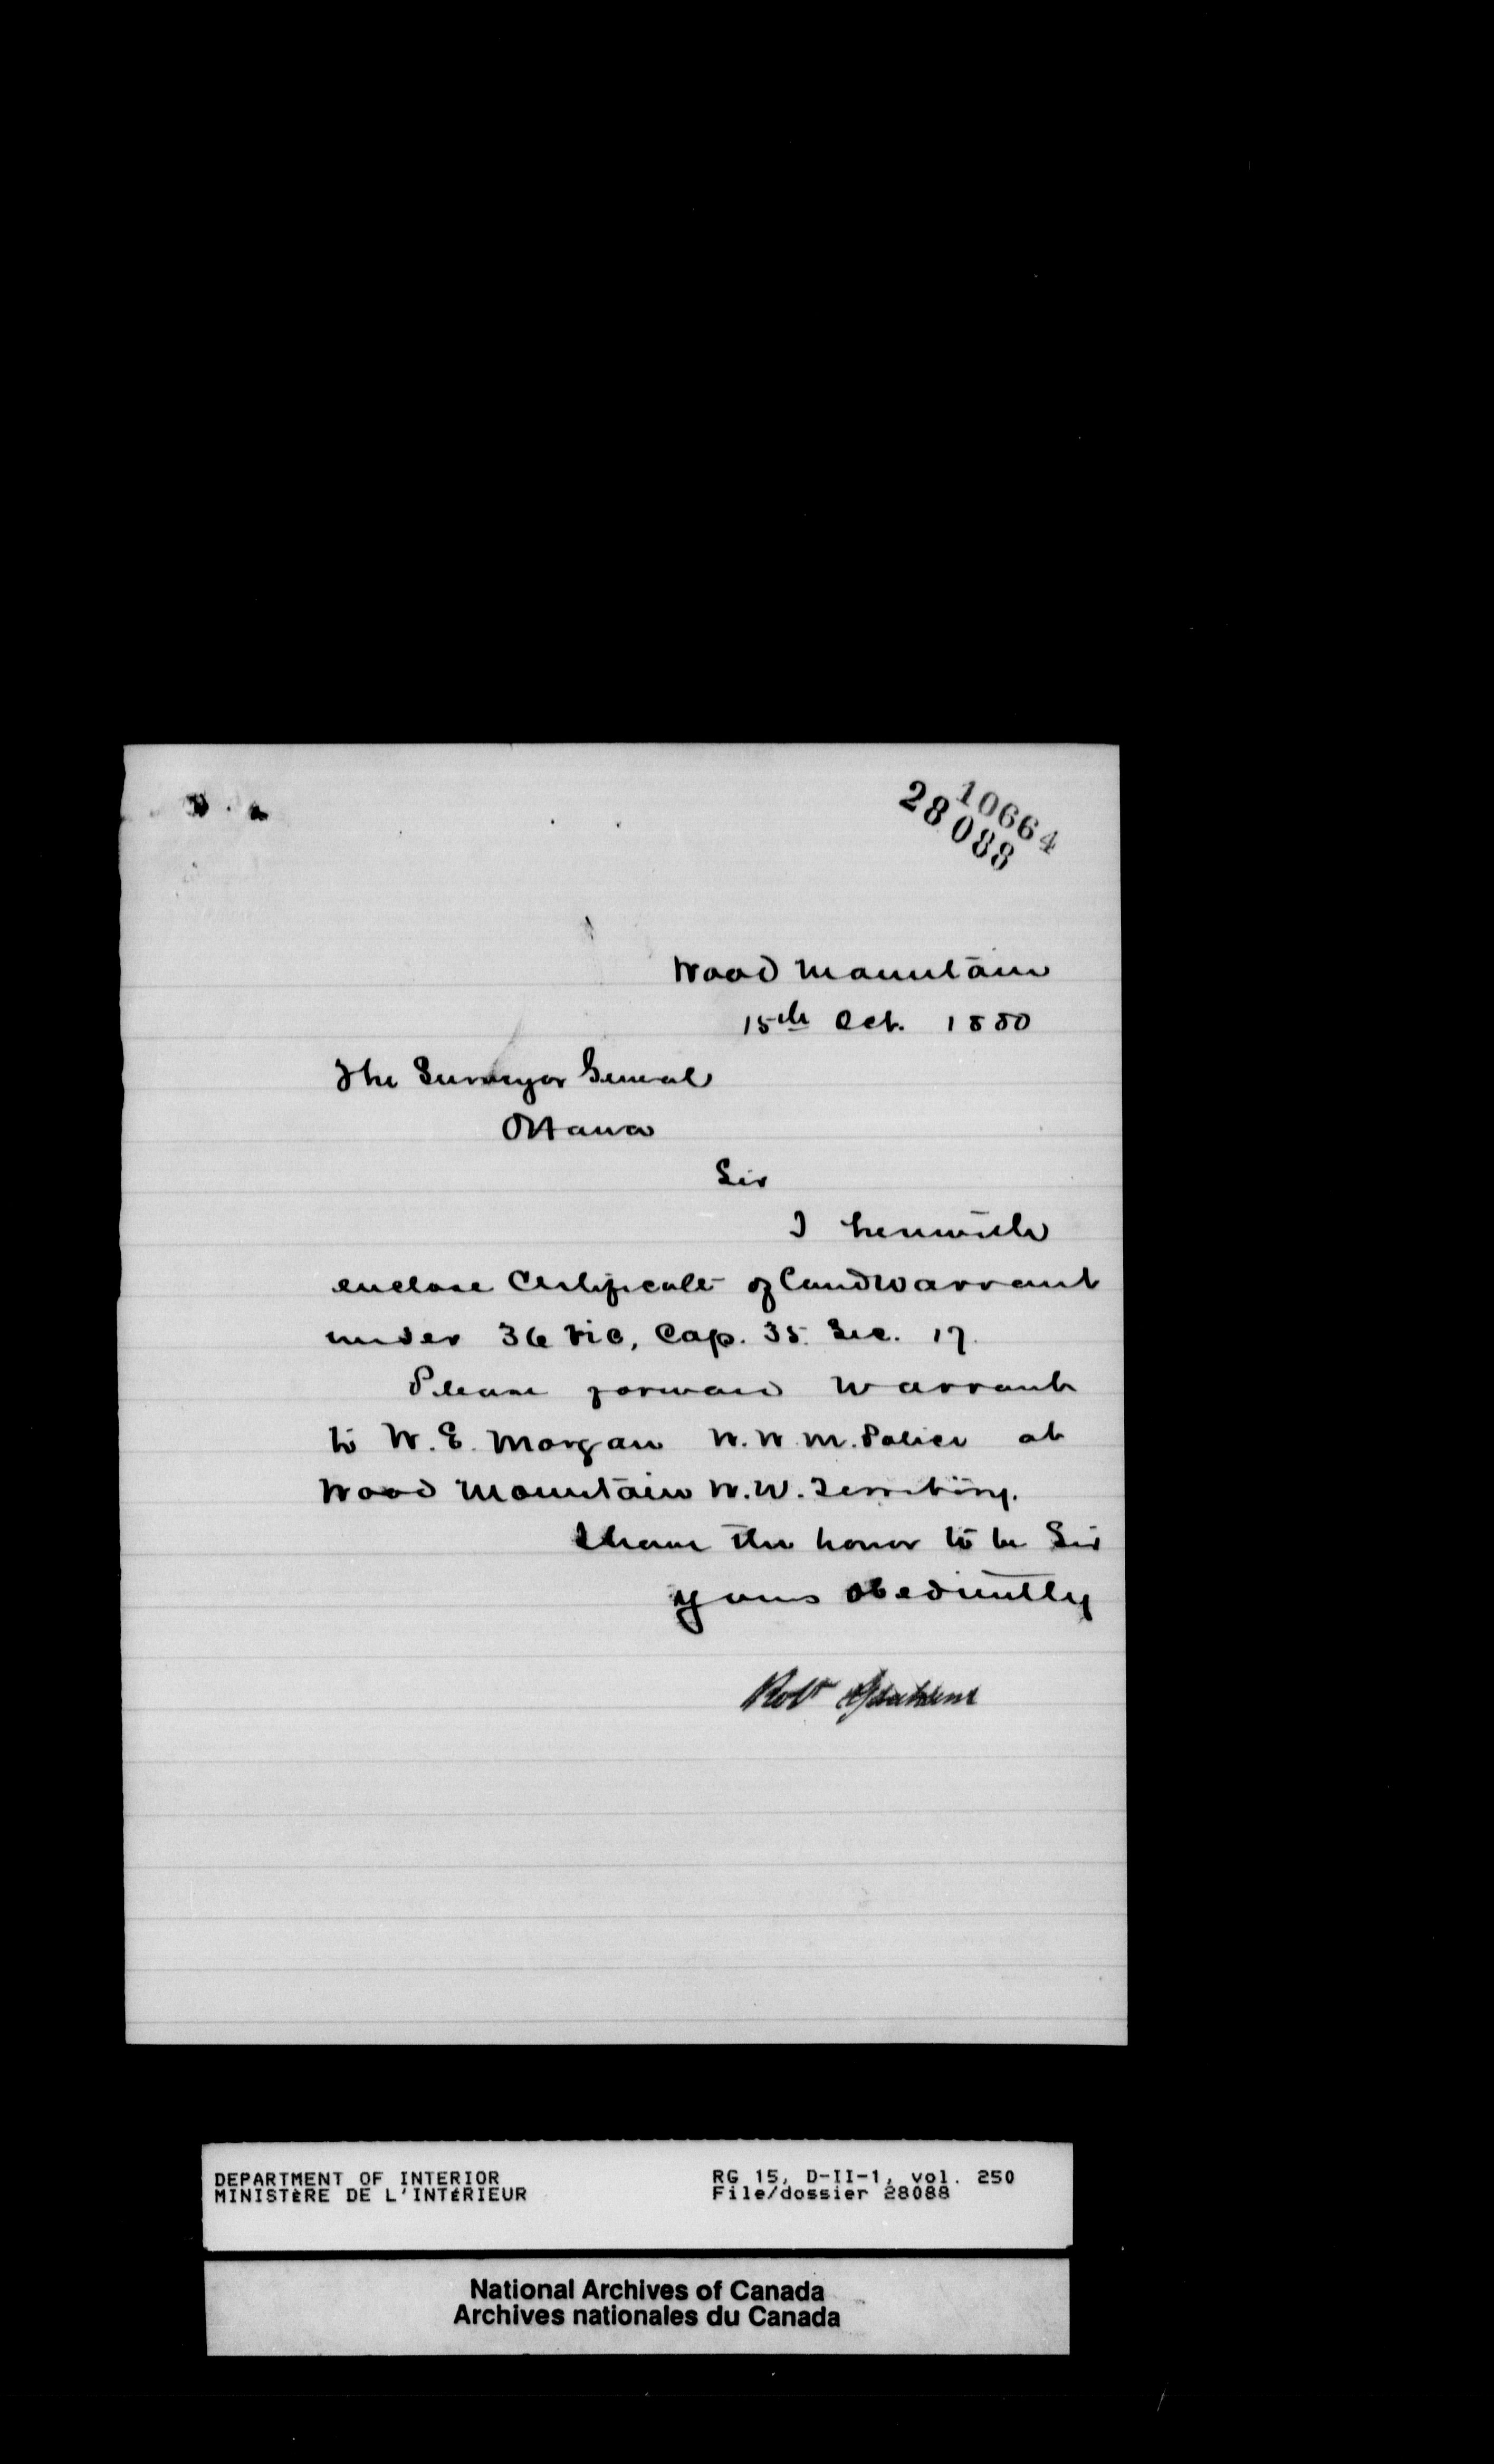 10664
28088
Wood Mountain
15th Oct. 1880
The Surveyor General
Ottawa
Sir
I herewith
enclose Certificate of Land Warrant
under 36 Vic, Cap. 35. Sec. 17.
Please forward Warrant
to W. E. Morgan N. W. M. Police at
Wood Mountain N. W. Territory.
I have the honor to be Sir
yours obediently
Robt
DEPARTMENT OF INTERIOR
MINISTÈRE DE L'INTÉRIEUR
RG 15, D-II-1, vol. 250
File/dossier 28088
National Archives of Canada
Archives nationales du Canada